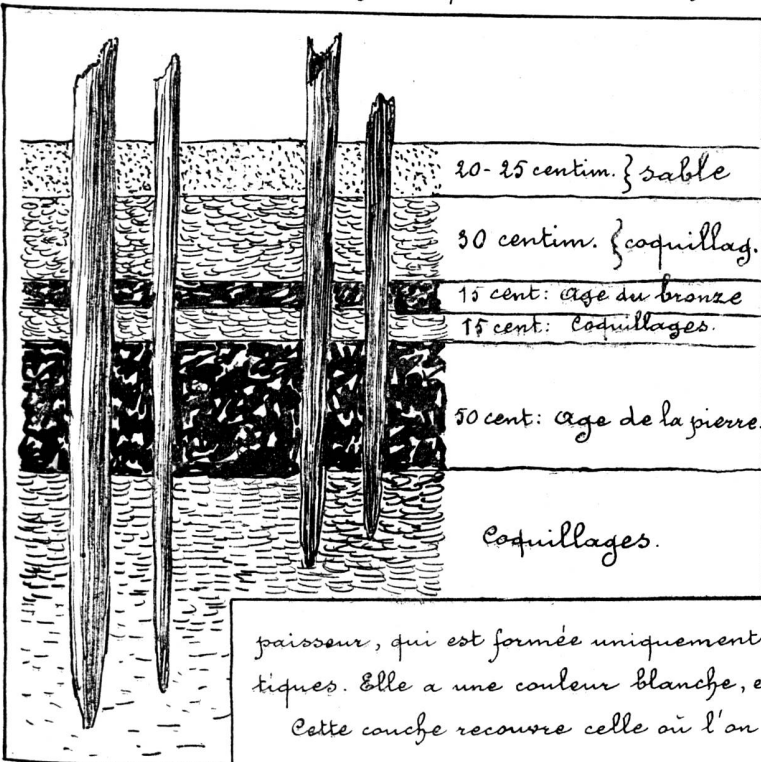 20-25 centim. } sable
30 centim. { coquillag.
15 cent: Age du bronze
15 cent.: Coquillages.
50 cent: Age de la pierre.
Coquillages.
paisseur, qui est formée uniquement
tiques. Elle a une couleur blanche, e
Cette couche recouvre celle où l'on